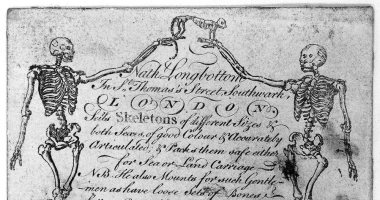 Nath. Longbottom
In St. Thomas's Street Southwark,
LONDON
Sells Skeletons of different Sizes &
both Sexes, of good Colour & Accurately
Articulated; & Packs them safe either
for Sea or Land Carriage
N.B. He also Mounts for such Gentle-
men as have loose Sets of Bones